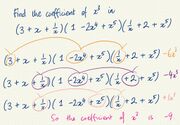 Find the coefficient of x³ in
(3 + x + 1/x)(1 - 2x⁴ + x⁵)(1/x + 2 + x⁵)
(3 + x + 1/x)(1 - 2x⁴ + x⁵)(1/x + 2 + x⁵) -6x³
(3 + x + 1/x)(1 - 2x⁴ + x⁵)(1/x + 2 + x⁵) -4x³
(3 + x + 1/x)(1 - 2x⁴ + x⁵)(1/x + 2 + x⁵) x³
So the coefficient of x³ is -9